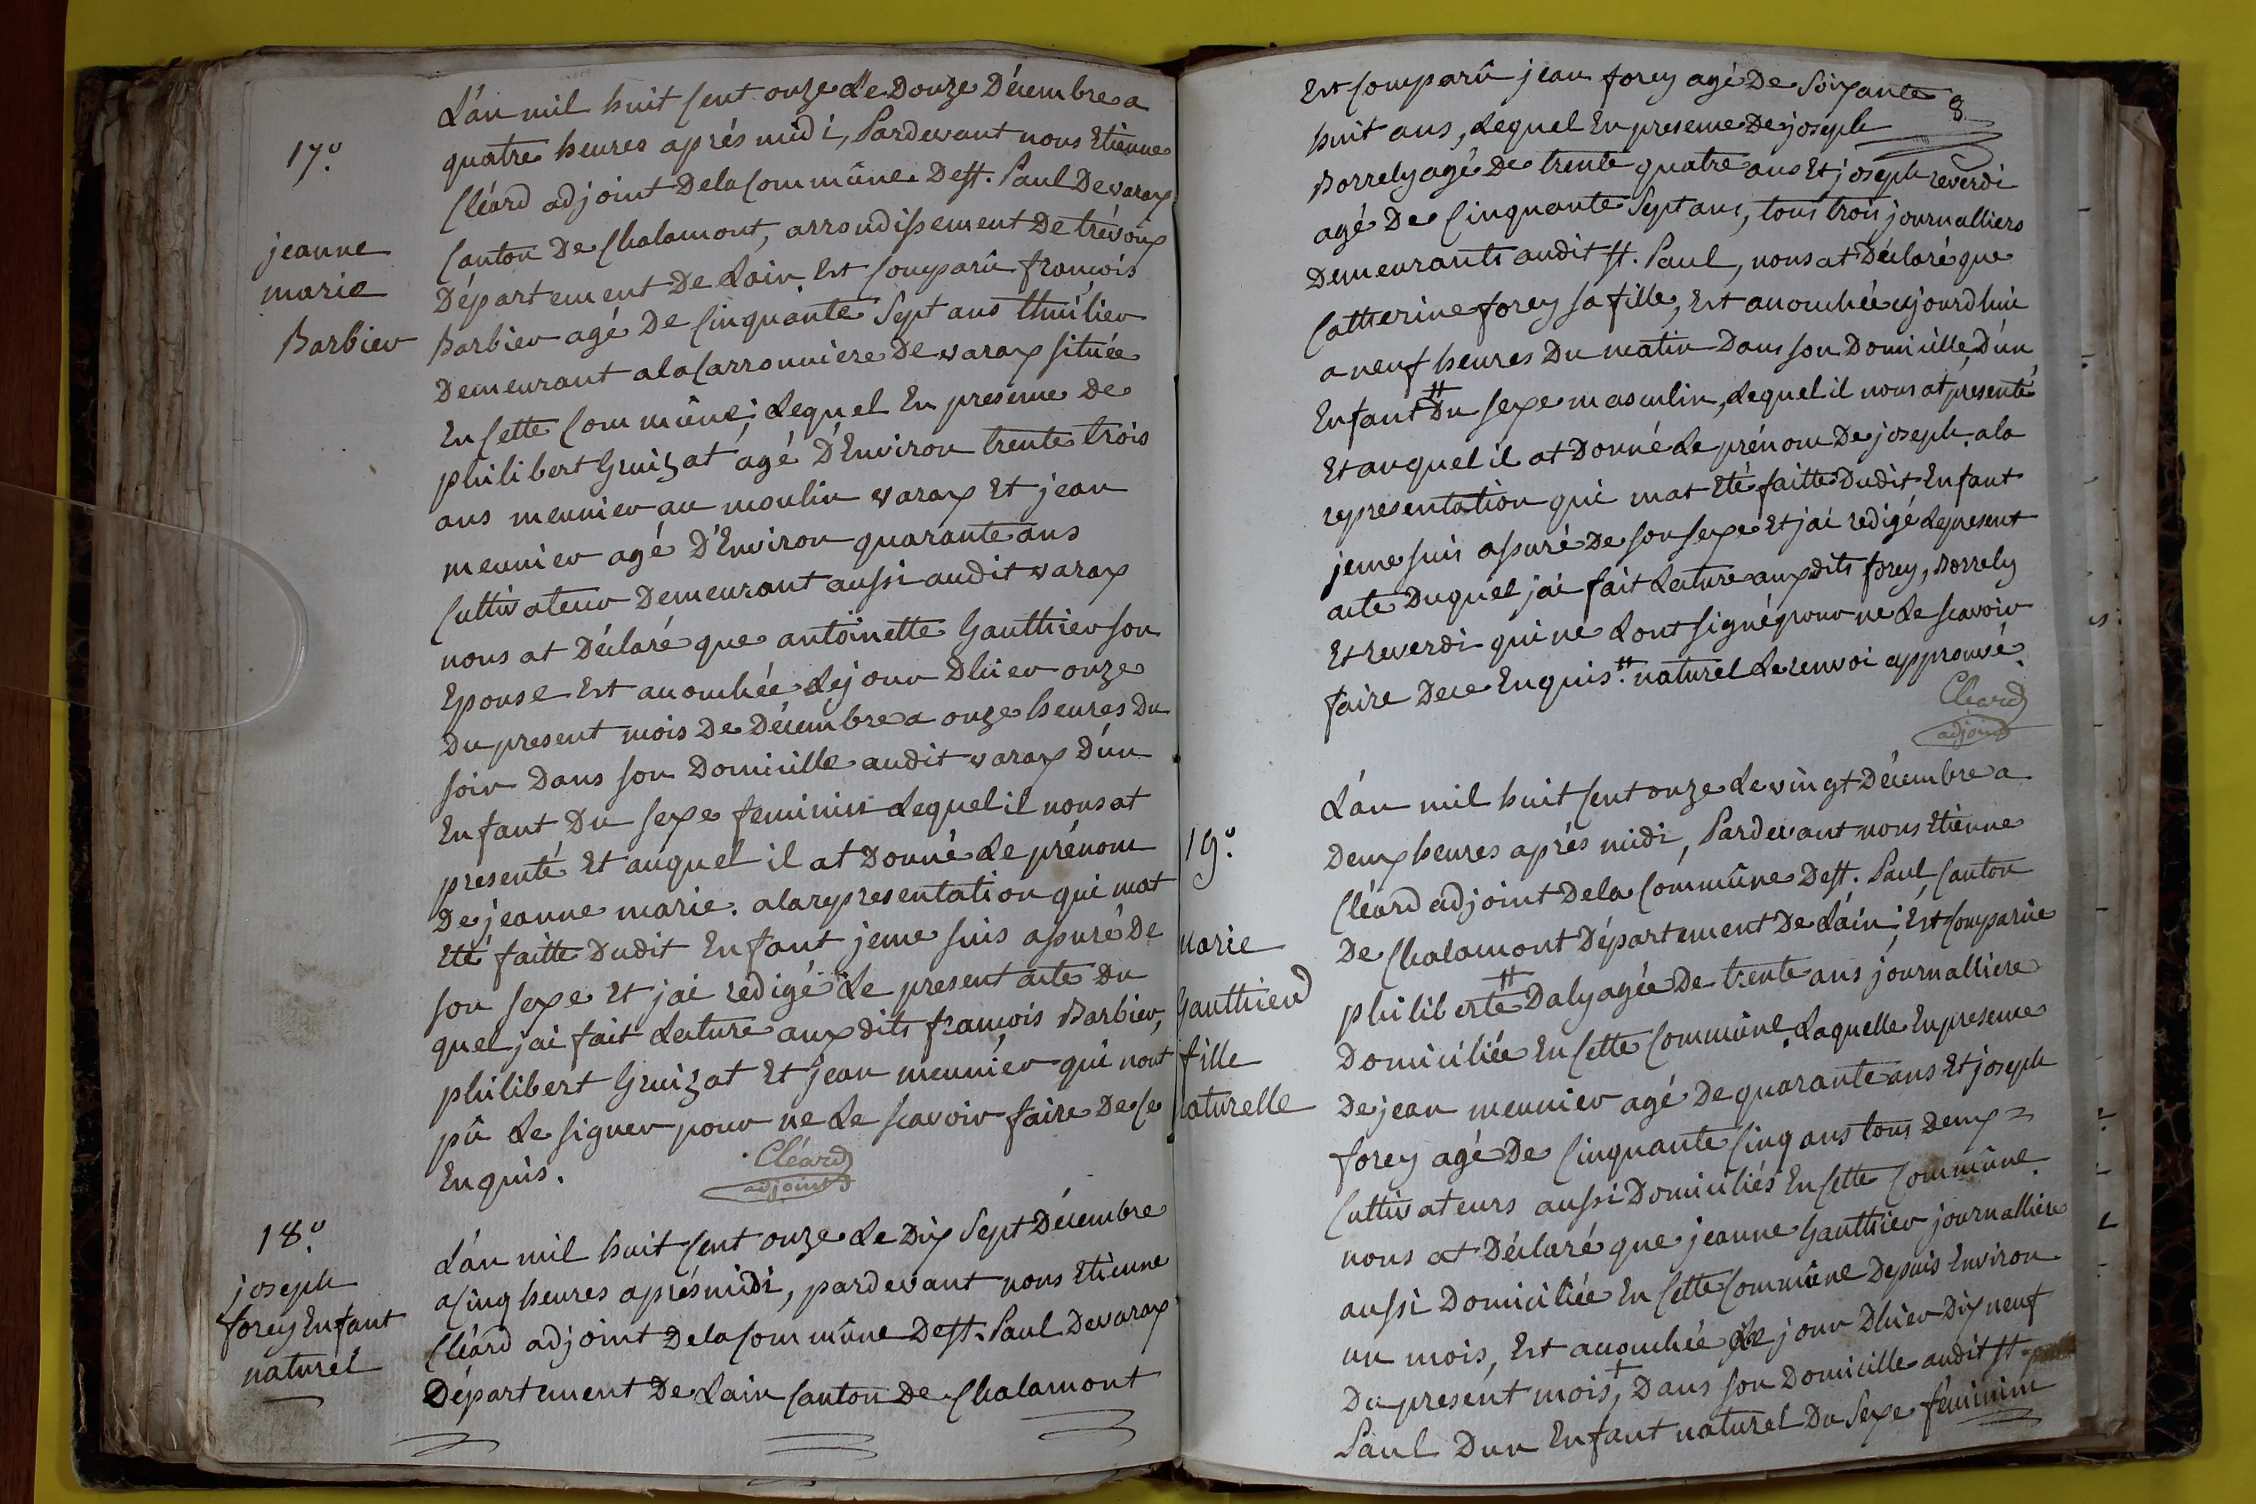 17.o
jeanne
marie
Barbier
L'an mil huit cent onze Le Douze Décembre a
quatre heures aprés midi, Pardevant nous Etienne
Cléard adjoint De la Commûne De St. Paul De varax
Canton De Chalamont, arrondissement De trévoux
Département De Lain. Est Comparû françois
Barbier agé De Cinquante Sept ans thuilier
Demeurant a la Carronniere De varax située
En Cette Commûne; Lequel En presence De
philibert Gruizat agé D'Environ trente trois
ans meunier au moulin varax Et jean
meunier agé D'Environ quarante ans
Cultivateur Demeurant aussi audit varax
nous at Déclaré que antoinette Gauthier son
Epouse Est accouchée Le jour Dhier onze
Du present mois De Décembre a onze heures Du
soir Dans son Domicille audit varax D'un
Enfant Du sexe feminin Lequel il nous at
presenté Et auquel il at Donné Le prénom
De jeanne marie. a la representation qui mat
Eté faitte Dudit Enfant je me suis assuré De
son sexe Et jai redigé Le present acte Du
quel jai fait Lecture auxdits françois Barbier,
philibert Gruizat Et jean meunier qui nont
pû Le signer pour ne Le scavoir faire De Ce
Enquis.
Cléard
adjoint
18.o
joseph
forey Enfant
naturel
L'an mil huit Cent onze Le Dix Sept Décembre
a Cinq heures aprés midi, pardevant nous Etienne
Cléard adjoint De la Commûne De St. Paul De varax
Département De Lain Canton De Chalamont
8
Est Comparû jean forey agé De Soixante
huit ans, Lequel En presence De joseph
Borrely agé De trente quatre ans Et joseph reverdi
agé De Cinquante Sept ans, tous trois journalliers
Demeurants audit St. Paul, nous at Déclaré que
Catherine forey sa fille, Est accouchée ajourdhui
a neuf heures Du matin Dans son Domicille, D'un
Enfant # Du sexe masculin, Lequel il nous at presenté
Et auquel il at Donné Le prénom De joseph. a la
representation qui mat Eté faitte Dudit Enfant
je me suis assuré De son sexe Et jai redigé Le present
acte Duquel jai fait Lecture auxdits forey, Borrely
Et reverdi qui ne Lont signé pour ne Le scavoir
faire De ce Enquis. # naturel Le renvoi approuvé.
Cléard
adjoint
19.o
Marie
Gauthier
fille
naturelle
L'an mil huit Cent onze Le vingt Décembre a
Deux heures aprés midi, Pardevant nous Etienne
Cléard adjoint De la Commûne De St. Paul Canton
De Chalamont Département De Lain; Est Comparüe
philiberte # Daly agée De trente ans journalliere
Domiciliée En Cette Commûne. Laquelle En presence
De jean meunier agé De quarante ans Et joseph
forey agé De Cinquante Cinq ans tous Deux =
Cultivateurs aussi Domiciliés En Cette Commûne.
nous at Déclaré que jeanne Gauthier journalliere
aussi Domiciliée En Cette Commûne Depuis Environ
un mois, Est accouchée Le jour Dhier Dix neuf
Du present mois, + Dans son Domicille audit St
Paul Dun Enfant naturel Du Sexe féminim